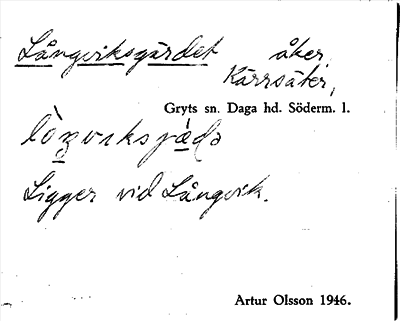 Långviksgärdet åker,
Kärrsäter,
Gryts sn. Daga hd. Söderm. l.
Ligger vid Långvik.
Artur Olsson 1946.